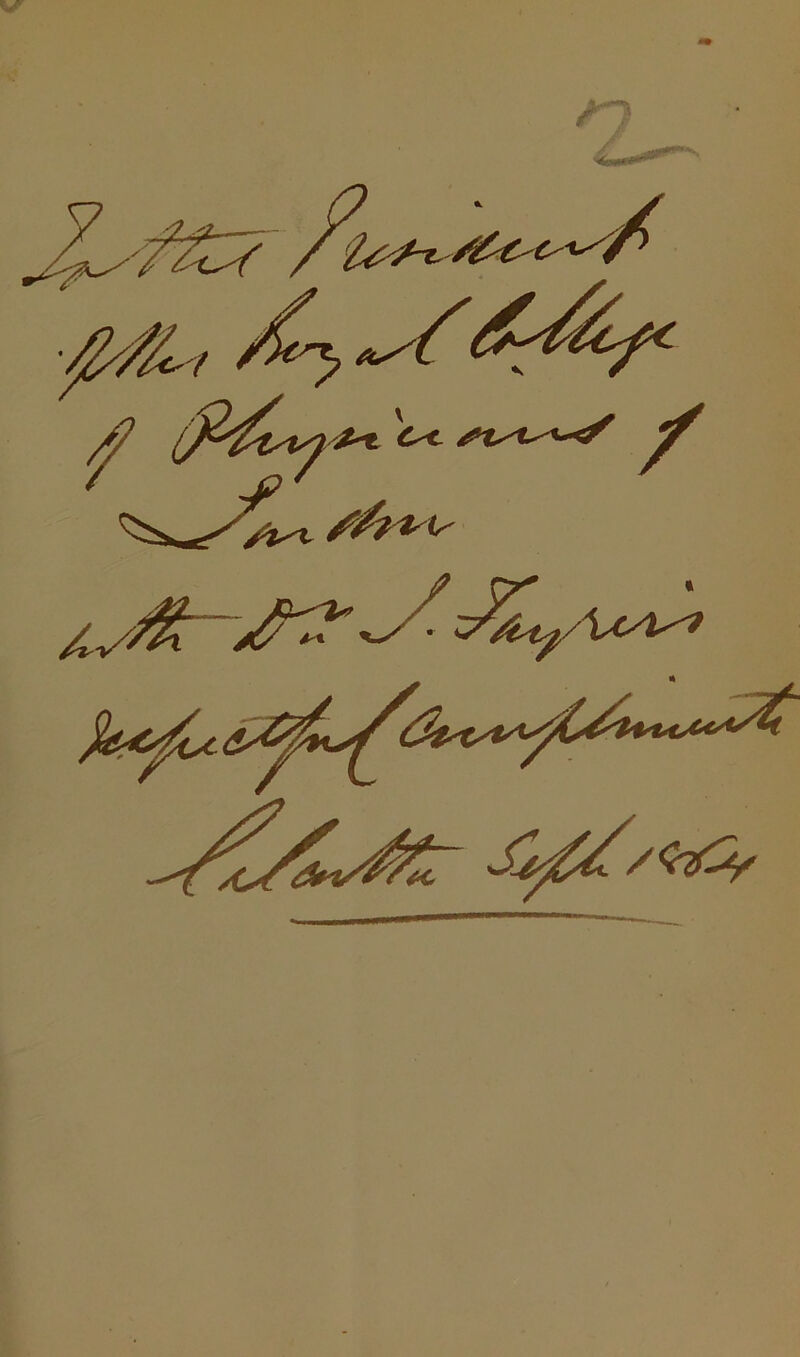 2
To the President
of the Royal College
of Physicians of
London
with Dr J. Taylor's
respectful Compliments
Sept 186